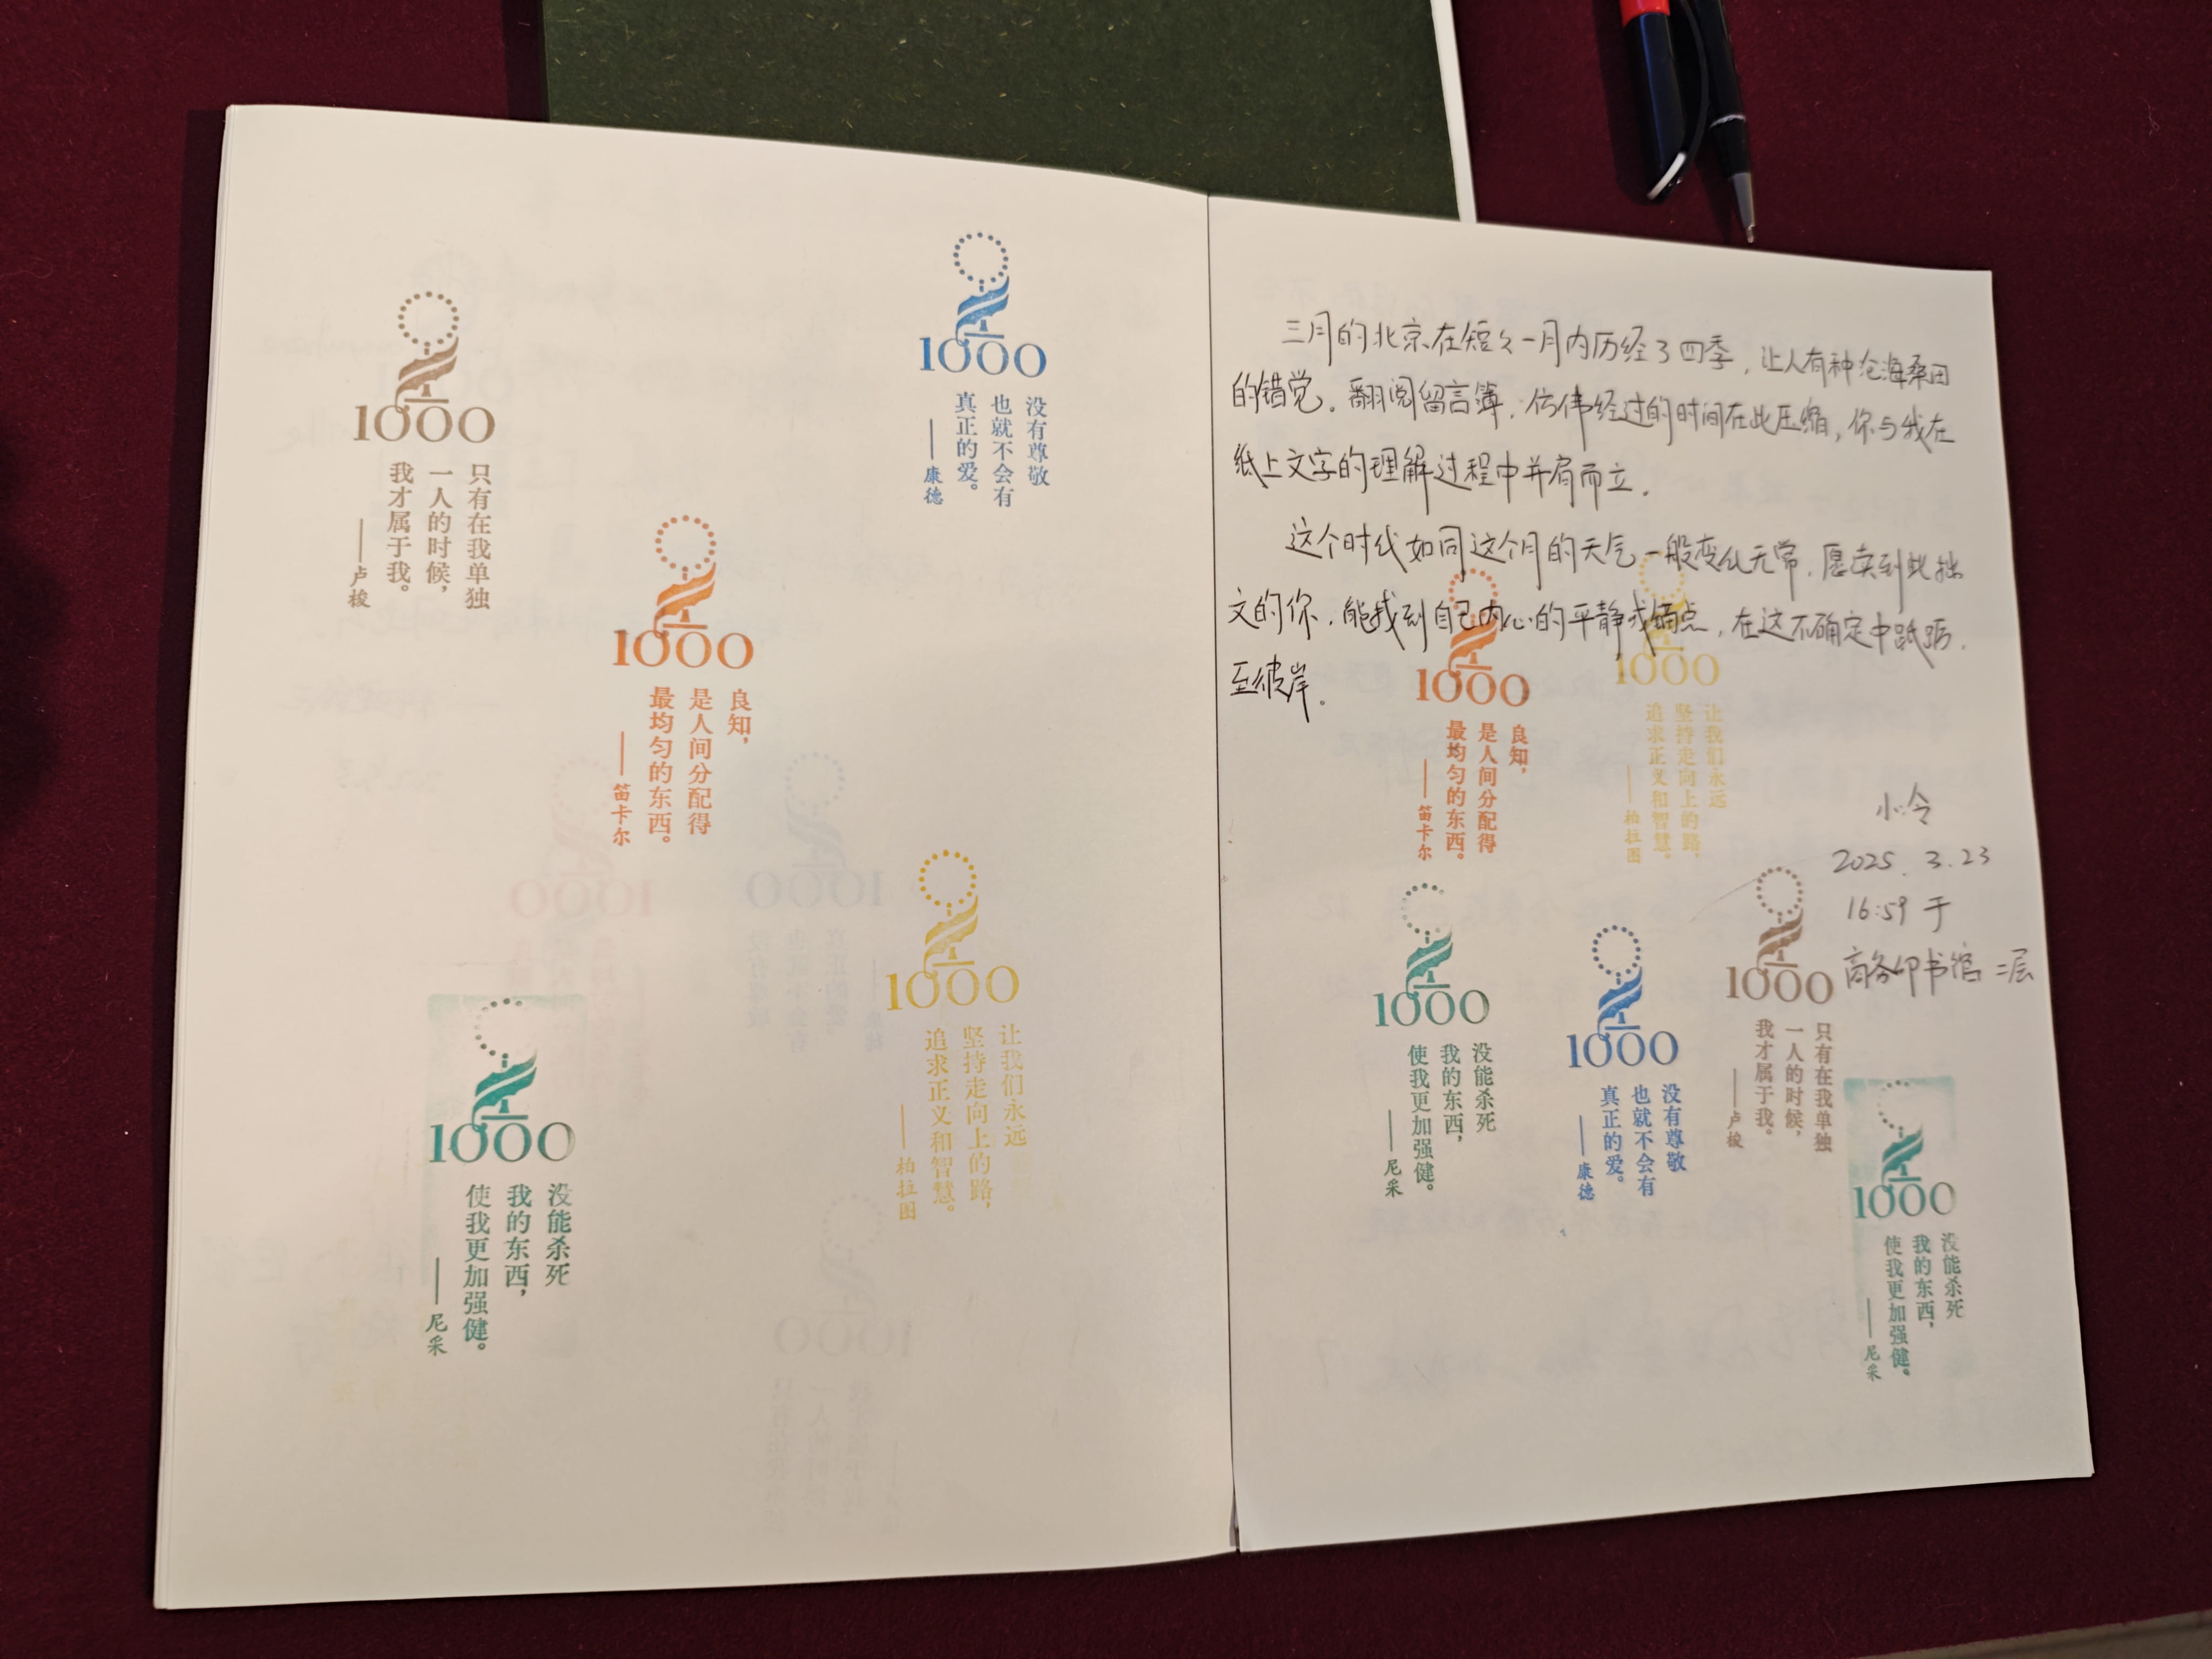 1000
只有在我单独
一人的时候，
我才属于我。
——卢梭
1000
没有尊敬
也就不会有
真正的爱。
——康德
1000
良知，
是人间分配得
最均匀的东西。
——笛卡尔
1000
让我们永远
坚持走向上的路，
追求正义和智慧。
——柏拉图
1000
没能杀死
我的东西，
使我更加强健。
——尼采
三月的北京在短々一月内历经了四季，让人有种沧海桑田
的错觉。翻阅留言簿，仿佛经过的时间在此压缩，你与我在
纸上文字的理解过程中并肩而立。
这个时代如同这个月的天气一般变化无常，愿读到此拙
文的你，能找到自己内心的平静或锚点，在这不确定中踱踏，
至彼岸。
小令
2025.3.23
16:59 于
商务印书馆二层
1000
良知，
是人间分配得
最均匀的东西。
——笛卡尔
1000
让我们永远
坚持走向上的路，
追求正义和智慧。
——柏拉图
1000
没能杀死
我的东西，
使我更加强健。
——尼采
1000
没有尊敬
也就不会有
真正的爱。
——康德
1000
只有在我单独
一人的时候，
我才属于我。
——卢梭
1000
没能杀死
我的东西，
使我更加强健。
——尼采